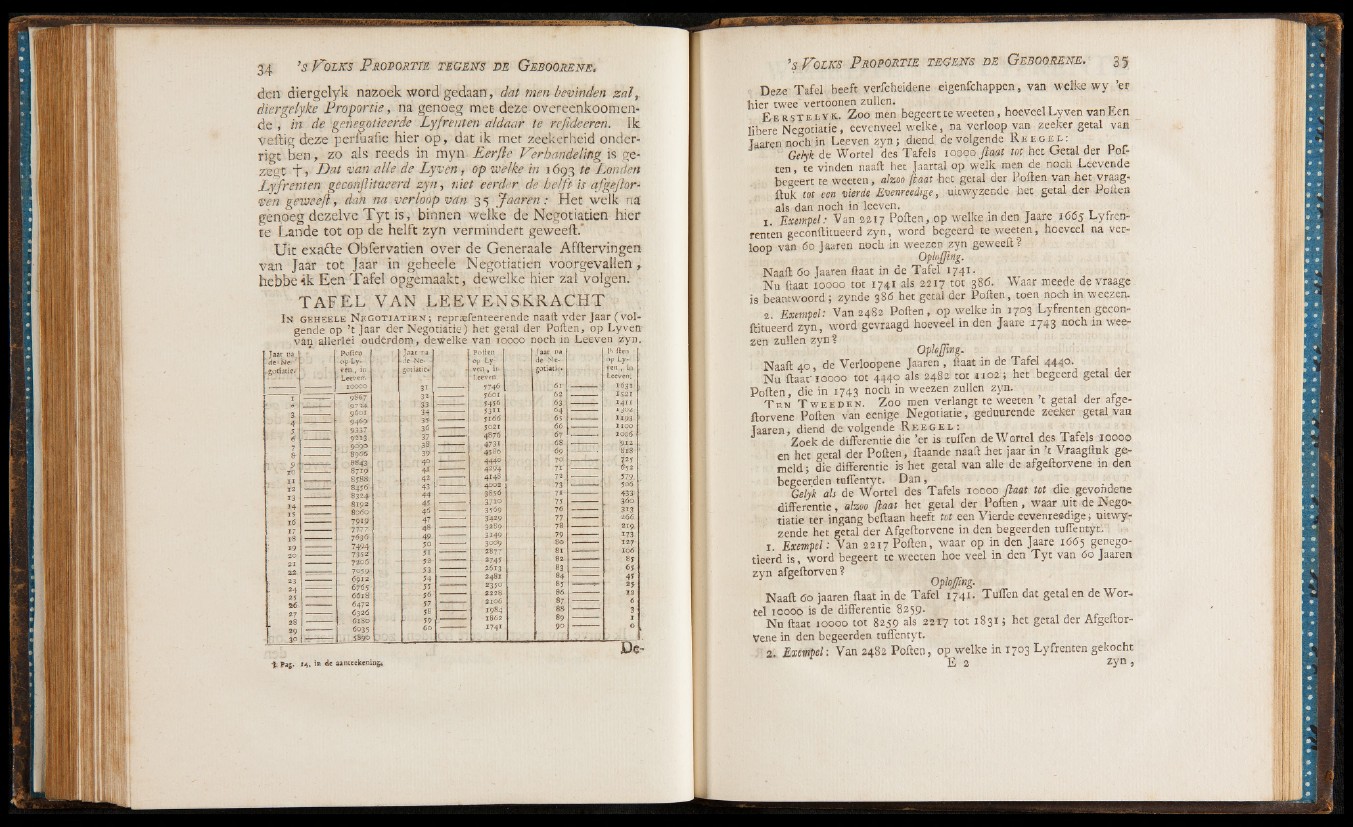 34 's VOLKS PROPORTIE TEGENS DE GEBOORENE.
den diergelyk nazoek word gedaan, dat men bevinden zal,
diergelyke Proportie, na genoeg met deze overeenkoomen-
de, in de genegotieerde Lyfrenten aldaar te reſideeren. Ik
veſtig deze perſuaſie hier op, dat ik met zeekerheid onder-
rigt ben, zo als reeds in myn Eerſte Verhandeling is ge-
zegt †, Dat van alle de Lyven, op welke in 1693 te Londen
Lyfrenten geconſtitueerd zyn, niet eerder de helft is afgeſtor-
ven geweeſt, dan na verloop van 35 Jaaren: Het welk na
genoeg dezelve Tyt is, binnen welke de Negotiatien hier
te Lande tot op de helft zyn vermindert geweeſt.
Uit exacte Obſervatien over de Generaale Afſtervingen
van Jaar tot Jaar in geheele Negotiatien voorgevallen,
hebbe ik Een Tafel opgemaakt, dewelke hier zal volgen.
TAFEL VAN LEEVENSKRACHT
IN GEHEELE NEGOTIATIEN; repræſenteerende naaſt yder Jaar (vol-
gende op 't Jaar der Negotiatie) het getal der Poſten, op Lyven
van allerlei ouderdom, dewelke van 10000 noch in Leeven zyn.
Jaar na Poſten Jaar na Poſten Jaar na Poſten
de Ne- op Ly- de Ne- op Ly- de Ne- op Ly-
gotiatie. ven, in gotiatie. ven, in gotiatie. ven, in
Leeven. Leeven. Leeven.
10000 31 5746 61 1631
1 9867 32 5601 62 1521
2 9734 33 5456 63 1411
3 9601 34 5311 64 1302
4 9469 35 5166 65 1193
5 9337 36 5021 66 1100
6 9213 37 4876 67 1006
7 9090 38 4731 68 912
8 8966 39 4586 69 818
9 8843 40 4440 70 725
10 8719 41 4294 71 652
11 8588 42 4148 72 579
12 8456 43 4002 73 506
13 8324 44 3856 74 433
14 8192 45 3710 75 360
15 8060 46 3569 76 313
16 7919 47 3429 77 266
17 7777 48 3289 78 219
18 7636 49 3149 79 173
19 7494 50 3009 80 127
20 7352 51 2877 81 106
21 7206 52 2745 82 85
22 7059 53 2613 83 65
23 6912 54 2481 84 45
24 6765 55 2350 85 25
25 6618 56 2228 86 12
26 6472 57 2106 87 6
27 6326 58 1984 88 3
28 6180 59 1862 89 1
29 6035 60 1741 90 0
30 5890
De-
† Pag. 14. in de aanteekening.
's VOLKS PROPORTIE TEGENS DE GEBOORENE. 35
Deze Tafel heeft verſcheidene eigenſchappen, van welke wy 'er
hier twee vertoonen zullen.
EERSTELYK. Zoo men begeert te weeten, hoeveel Lyven van Een
libere Negotiatie, eevenveel welke, na verloop van zeeker getal van
Jaaren noch in Leeven zyn; diend de volgende REEGEL:
Gelyk de Wortel des Tafels 10000 ſtaat tot het Getal der Poſ-
ten, te vinden naaſt het Jaartal op welk men de noch Leevende
begeert te weeten, alzoo ſtaat het getal der Poſten van het vraag-
ſtuk tot een vierde Evenreedige, uitwyzende het getal der Poſten
als dan noch in leeven.
1. Exempel: Van 2217 Poſten, op welke in den Jaare 1665 Lyfren-
renten geconſtitueerd zyn, word begeerd te weeten, hoeveel na ver-
loop van 60 Jaaren noch in weezen zyn geweeſt?
Oploſſing.
Naaſt 60 Jaaren ſtaat in de Tafel 1741.
Nu ſtaat 10000 tot 1741 als 2217 tot 386. Waar meede de vraage
is beantwoord; zynde 386 het getal der Poſten, toen noch in weezen.
2. Exempel: Van 2482 Poſten, op welke in 1703 Lyfrenten gecon-
ſtitueerd zyn, word gevraagd hoeveel in den Jaare 1743 noch in wee-
zen zullen zyn?
Oploſſing.
Naaſt 40, de Verloopene Jaaren, ſtaat in de Tafel 4440.
Nu ſtaat 10000 tot 4440 als 2482 tot 1102; het begeerd getal der
Poſten, die in 1743 noch in weezen zullen zyn.
TEN TWEEDEN. Zoo men verlangt te weeten 't getal der afge-
ſtorvene Poſten van eenige Negotiatie, geduurende zeeker getal van
Jaaren, diend de volgende REEGEL:
Zoek de differentie die 'er is tuſſen de Wortel des Tafels 10000
en het getal der Poſten, ſtaande naaſt het jaar in 't Vraagſtuk ge-
meld; die differentie is het getal van alle de afgeſtorvene in den
begeerden tuſſentyt. Dan,
Gelyk als de Wortel des Tafels 10000 ſtaat tot die gevondene
differentie, alzoo ſtaat het getal der Poſten, waar uit de Nego-
tiatie ter ingang beſtaan heeft tot een Vierde eevenreedige, uitwy-
zende het getal der Afgeſtorvene in den begeerden tuſſentyt.
1. Exempel: Van 2217 Poſten, waar op in den Jaare 1665 genego-
tieerd is, word begeert te weeten hoe veel in den Tyt van 60 Jaaren
zyn afgeſtorven?
Oploſſing.
Naaſt 60 jaaren ſtaat in de Tafel 1741. Tuſſen dat getal en de Wor-
tel 10000 is de differentie 8259.
Nu ſtaat 10000 tot 8259 als 2217 tot 1831; het getal der Afgeſtor-
vene in den begeerden tuſſentyt.
2. Exempel: Van 2482 Poſten, op welke in 1703 Lyfrenten gekocht
E 2 zyn,